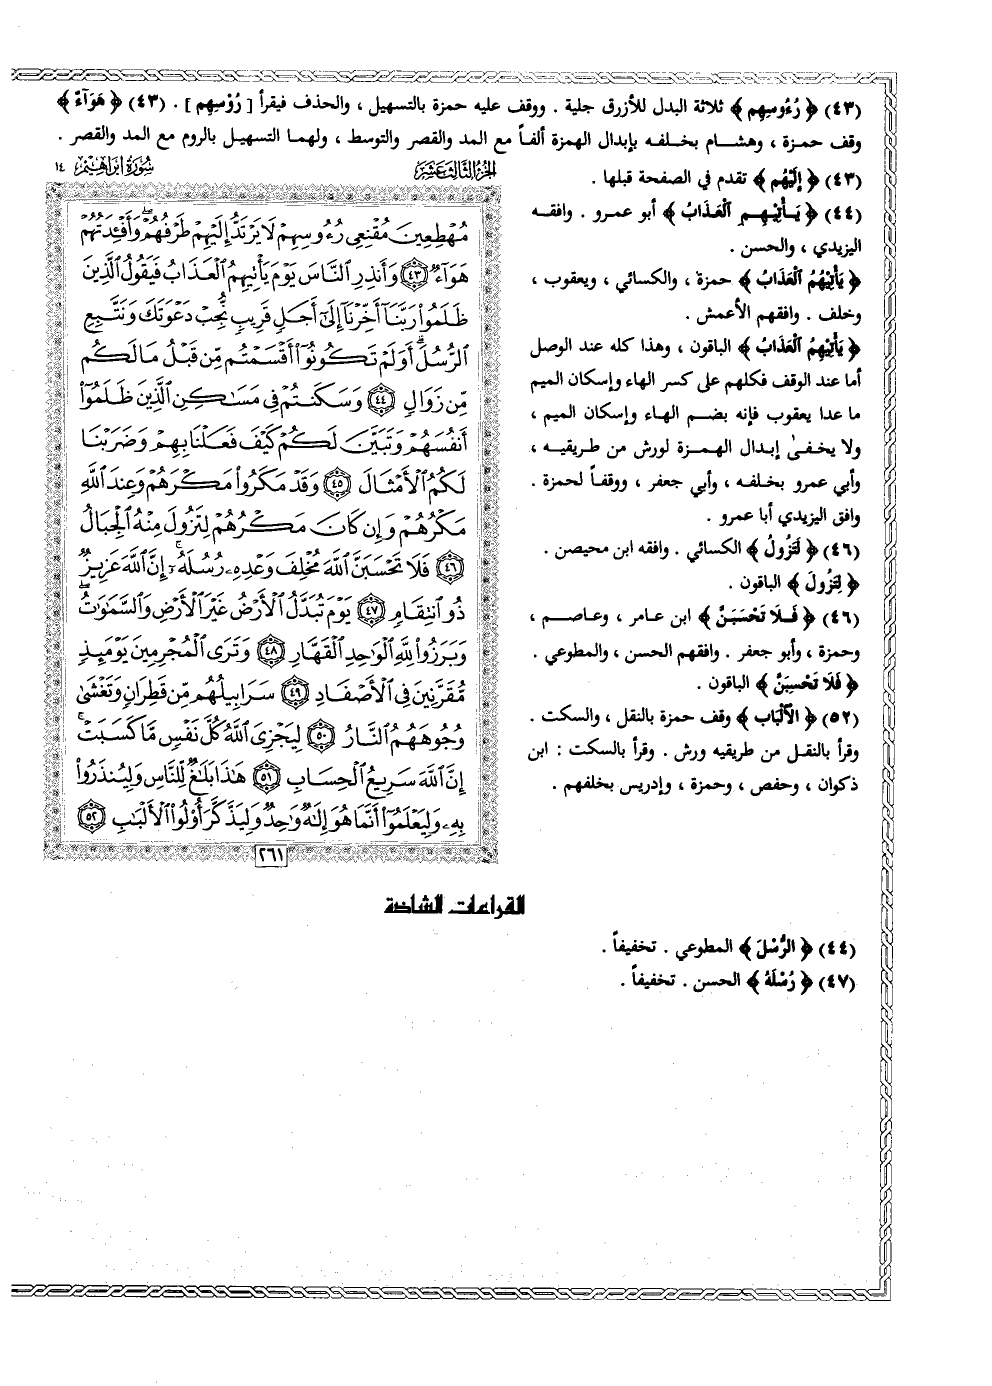 (٤٣) ﴿ رُءُوسِهِم ﴾ ثلاثة البدل للأزرق جلية . ووقف عليه حمزة بالتسهيل ، والحذف فيقرأ [ رُوْسِهِم ] . (٤٣) ﴿ هَوَآءٌ ﴾
وقف حمزة ، وهشام بخلفه بإبدال الهمزة ألفاً مع المد والقصر والتوسط ، ولهما التسهيل بالروم مع المد والقصر .
(٤٣) ﴿ إِلَيْهِم ﴾ تقدم في الصفحة قبلها .
(٤٤) ﴿ يَأْتِيهِمِ الْعَذَابُ ﴾ أبو عمرو . وافقه
اليزيدي ، والحسن .
﴿ يَأْتِيهُمُ الْعَذَابُ ﴾ حمزة ، والكسائي ، ويعقوب ،
وخلف . وافقهم الأعمش .
﴿ يَأْتِيهِمُ الْعَذَابُ ﴾ الباقون ، وهذا كله عند الوصل
أما عند الوقف فكلهم على كسر الهاء وإسكان الميم
ما عدا يعقوب فإنه بضم الهاء وإسكان الميم ،
ولا يخفىٰ إبدال الهمزة لورش من طريقيه ،
وأبي عمرو بخلفه ، وأبي جعفر ، ووقفاً لحمزة .
وافق اليزيدي أبا عمرو .
(٤٦) ﴿ لَتَزُولُ ﴾ الكسائي . وافقه ابن محيصن .
﴿ لِتَزُولَ ﴾ الباقون .
(٤٦) ﴿ فَلَا تَحْسَبَنَّ ﴾ ابن عامر ، وعاصم ،
وحمزة ، وأبو جعفر . وافقهم الحسن ، والمطوعي .
﴿ فَلَا تَحْسِبَنَّ ﴾ الباقون .
(٥٢) ﴿ الْأَلْبَاب ﴾ وقف حمزة بالنقل ، والسكت .
وقرأ بالنقل من طريقيه ورش . وقرأ بالسكت : ابن
ذكوان ، وحفص ، وحمزة ، وإدريس بخلفهم .
الجزء الثالث عشر
سورة ابراهيم ١٤
مُهْطِعِينَ مُقْنِعِي رُءُوسِهِمْ لَا يَرْتَدُّ إِلَيْهِمْ طَرْفُهُمْ ۖ وَأَفْـِٔدَتُهُمْ
هَوَآءٌ ﴿٤٣﴾ وَأَنذِرِ ٱلنَّاسَ يَوْمَ يَأْتِيهِمُ ٱلْعَذَابُ فَيَقُولُ ٱلَّذِينَ
ظَلَمُوا۟ رَبَّنَآ أَخِّرْنَآ إِلَىٰٓ أَجَلٍ قَرِيبٍ نُّجِبْ دَعْوَتَكَ وَنَتَّبِعِ
ٱلرُّسُلَ ۗ أَوَلَمْ تَكُونُوٓا۟ أَقْسَمْتُم مِّن قَبْلُ مَا لَكُم
مِّن زَوَالٍ ﴿٤٤﴾ وَسَكَنتُمْ فِى مَسَـٰكِنِ ٱلَّذِينَ ظَلَمُوٓا۟
أَنفُسَهُمْ وَتَبَيَّنَ لَكُمْ كَيْفَ فَعَلْنَا بِهِمْ وَضَرَبْنَا
لَكُمُ ٱلْأَمْثَالَ ﴿٤٥﴾ وَقَدْ مَكَرُوا۟ مَكْرَهُمْ وَعِندَ ٱللَّهِ
مَكْرُهُمْ وَإِن كَانَ مَكْرُهُمْ لِتَزُولَ مِنْهُ ٱلْجِبَالُ
﴿٤٦﴾ فَلَا تَحْسَبَنَّ ٱللَّهَ مُخْلِفَ وَعْدِهِۦ رُسُلَهُۥٓ ۗ إِنَّ ٱللَّهَ عَزِيزٌ
ذُو ٱنتِقَامٍ ﴿٤٧﴾ يَوْمَ تُبَدَّلُ ٱلْأَرْضُ غَيْرَ ٱلْأَرْضِ وَٱلسَّمَـٰوَٰتُ ۖ
وَبَرَزُوا۟ لِلَّهِ ٱلْوَٰحِدِ ٱلْقَهَّارِ ﴿٤٨﴾ وَتَرَى ٱلْمُجْرِمِينَ يَوْمَئِذٍ
مُّقَرَّنِينَ فِى ٱلْأَصْفَادِ ﴿٤٩﴾ سَرَابِيلُهُم مِّن قَطِرَانٍ وَتَغْشَىٰ
وُجُوهَهُمُ ٱلنَّارُ ﴿٥٠﴾ لِيَجْزِىَ ٱللَّهُ كُلَّ نَفْسٍ مَّا كَسَبَتْ ۚ
إِنَّ ٱللَّهَ سَرِيعُ ٱلْحِسَابِ ﴿٥١﴾ هَـٰذَا بَلَـٰغٌ لِّلنَّاسِ وَلِيُنذَرُوا۟
بِهِۦ وَلِيَعْلَمُوٓا۟ أَنَّمَا هُوَ إِلَـٰهٌ وَٰحِدٌ وَلِيَذَّكَّرَ أُو۟لُوا۟ ٱلْأَلْبَـٰبِ ﴿٥٢﴾
٢٦١
القراءات الشاذة
(٤٤) ﴿ الرُّسْلَ ﴾ المطوعي . تخفيفاً .
(٤٧) ﴿ رُسْلَهُ ﴾ الحسن . تخفيفاً .